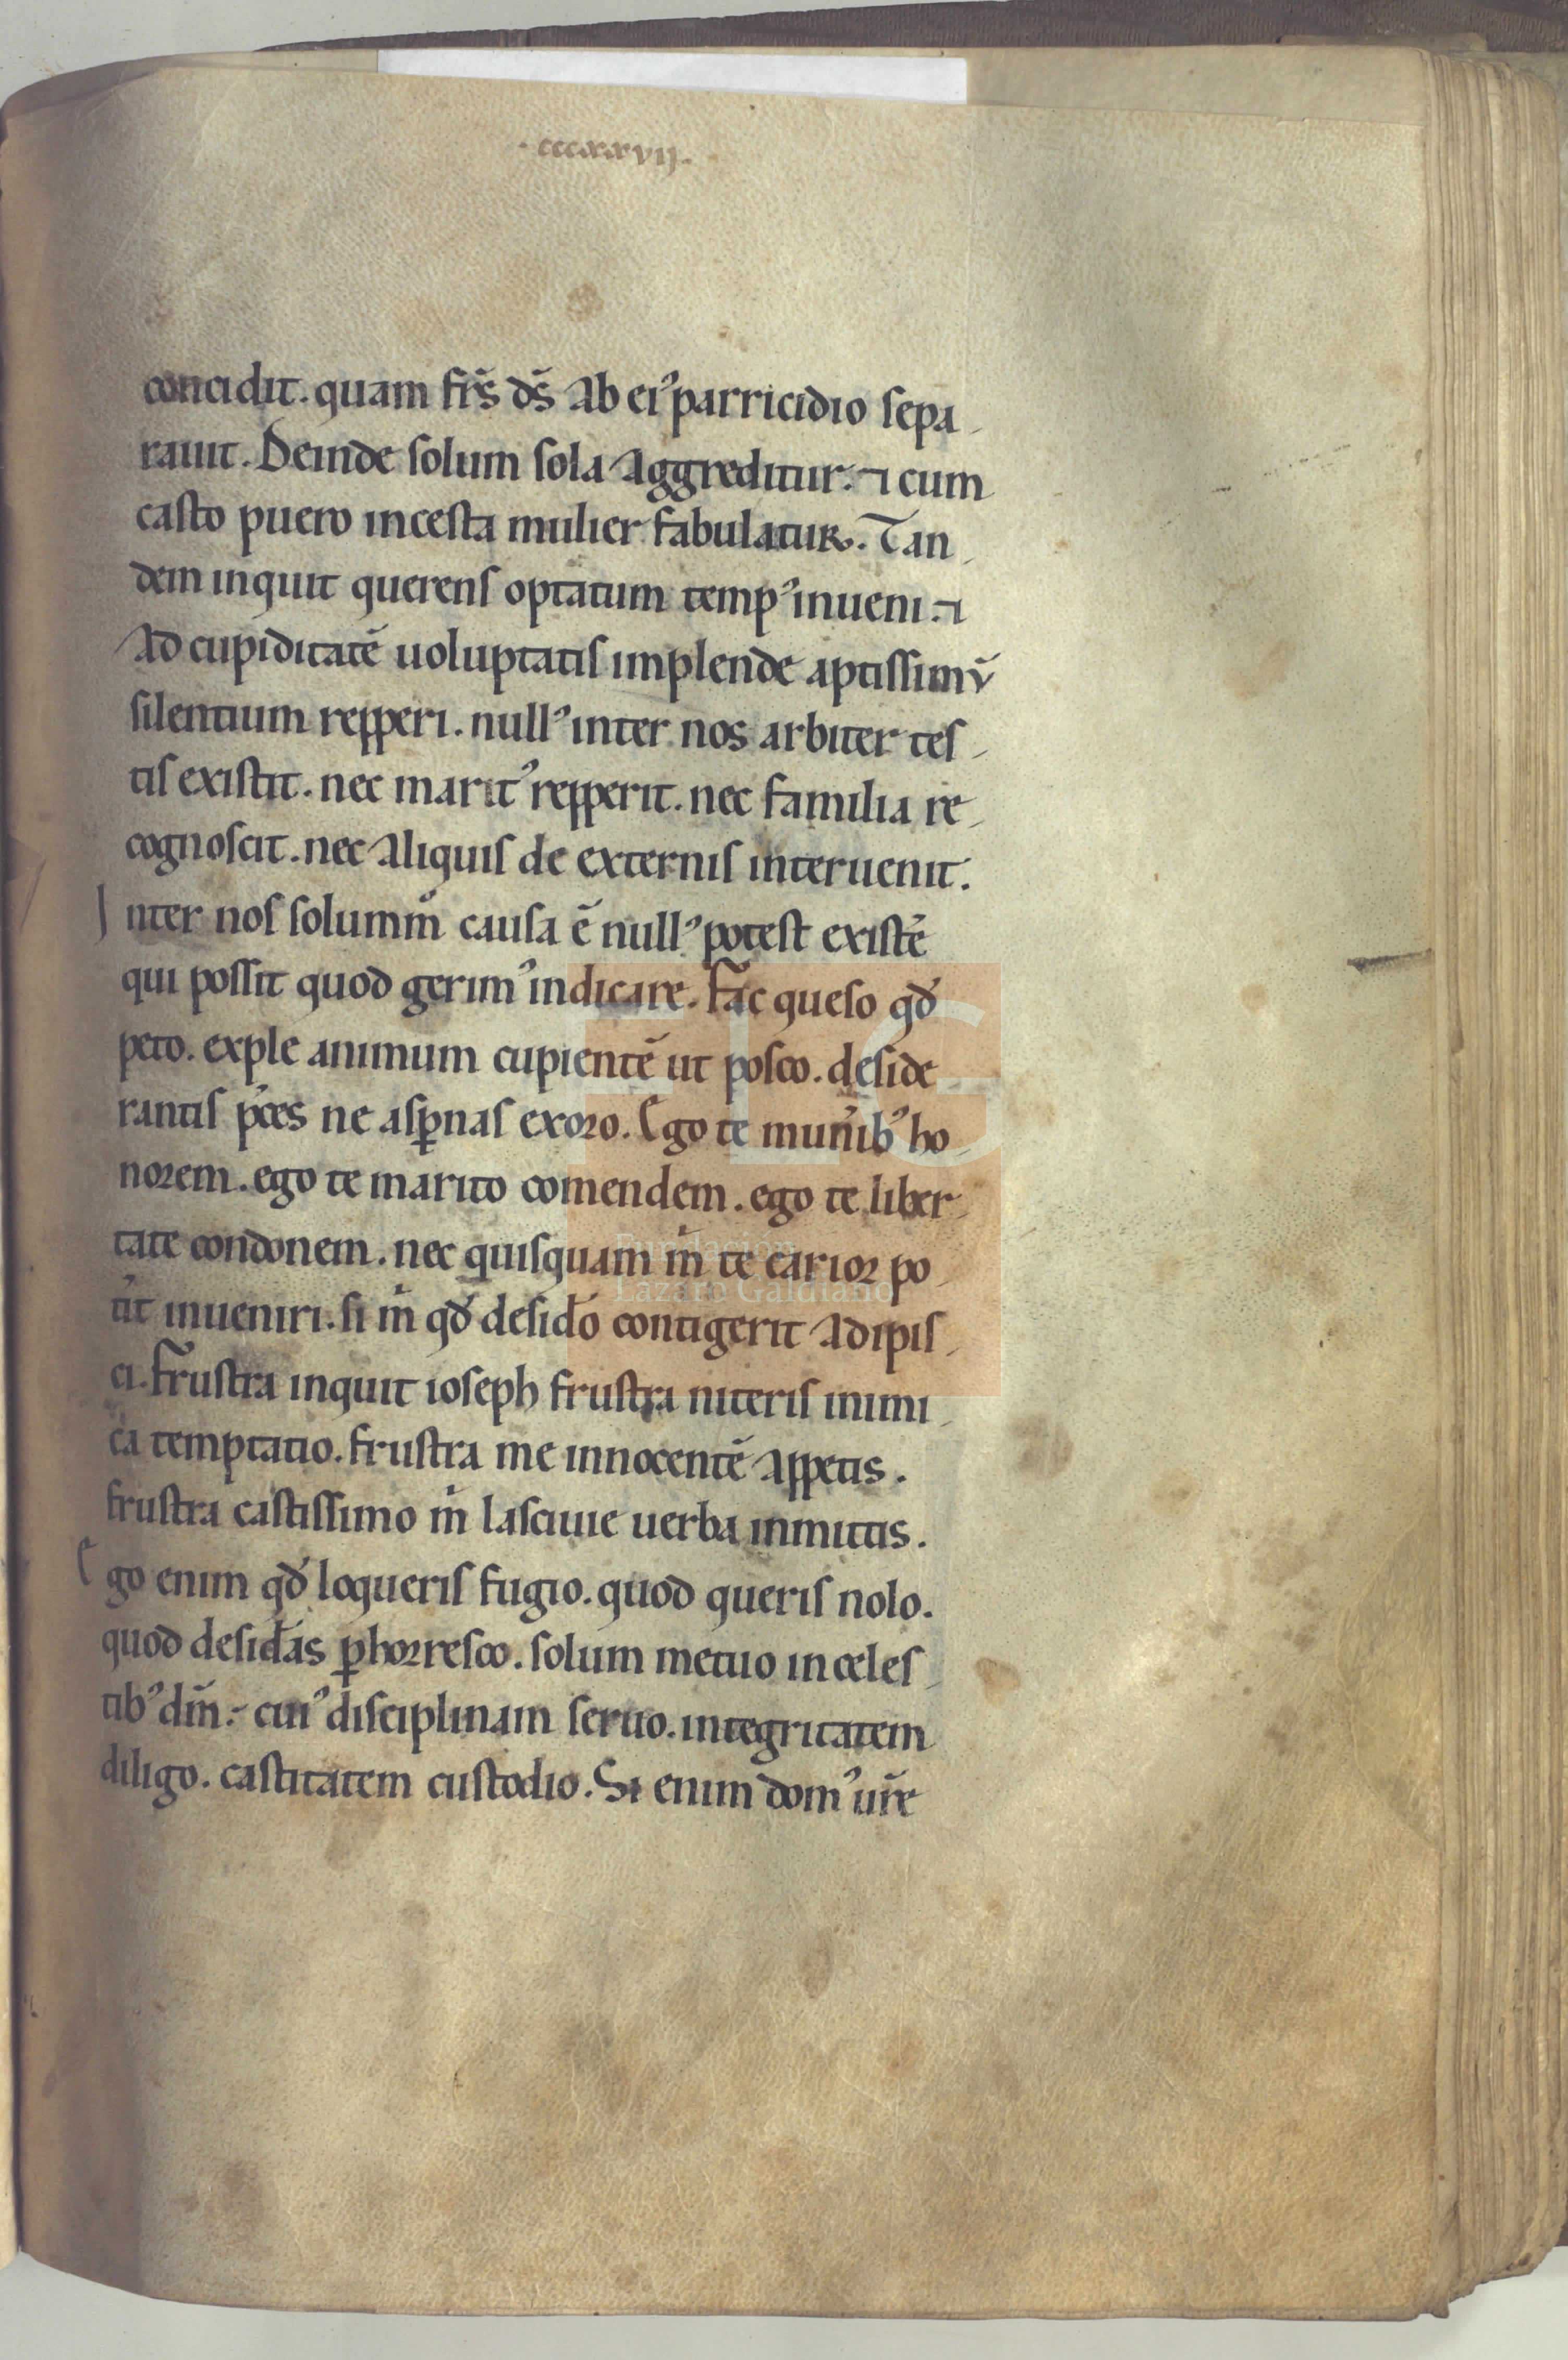 ·cccxxvij·
concidit. quam fr̄s ds̄ ab eiꝰ parricidio sepa
rauit. Deinde solum sola aggreditur. ⁊ cum
casto puero incesta mulier fabulatur. Tan
dem inquit querens optatum tempꝰ inueni. ⁊
ad cupiditatē uoluptatis implende aptissimū
silentium repperi. nullꝰ inter nos arbiter tes
tis existit. nec maritꝰ repperit. nec familia re
cognoscit. nec aliquis de externis interuenit.
Inter nos solummͦ causa ē nullꝰ potest existē
qui possit quod gerimꝰ indicare. Fac queso qđ
peto. exple animum cupientē ut posco. deside
rantis p̄ces ne asꝑnas exoro. Ego te mun̄ibꝰ ho
norem. ego te marito comendem. ego te liber
tate condonem. nec quisquam mͥ te carior po
tit̄ inueniri. si mͥ qđ desidō contigerit adipis
ci. Frustra inquit ioseph frustra niteris inimi
ca temptatio. frustra me innocentē appetis.
frustra castissimo mͥ lasciuie uerba inmittis.
Ego enim qđ loqueris fugio. quod queris nolo.
quod desidās ꝑhorresco. solum metuo in celes
tibꝰ dm̄. cuiꝰ disciplinam seruo. integritatem
diligo. castitatem custodio. Si enim domꝰ ur̄e
Fundación
Lázaro Galdiano